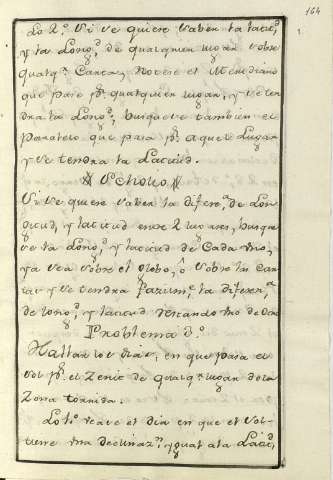 164
Lo 2.º Si se quiere saber la latitud,
y la Long.d de qualquier lugar sobre
qualq.r Cartas, Notese el Meridiano
que pase p.r qualquier lugar, y se ten
dra la Long.d, busquese tambien el
Paralelo que pasa p.r aquel Lugar
y se tendra la Latitud.
Scholio
Si se quiere saber la difer.a de Lon
gitud, y latitud entre 2 lugares, busque
se la Long.d y latitud de Cada Uno,
ya sea sobre el globo, ô sobre la Car
ta, y se tendra la difer.a
de Long.d, y latitud restando Uno de Otro
Problema 3.º
Hallar los dias, en que pasa el
Sol p.r el Zenit de qualq.r lugar de la
Zona torrida.
Lo 1.º vease el dia en que el Sol
tiene Una declinaz.n ygual a la Latit.d